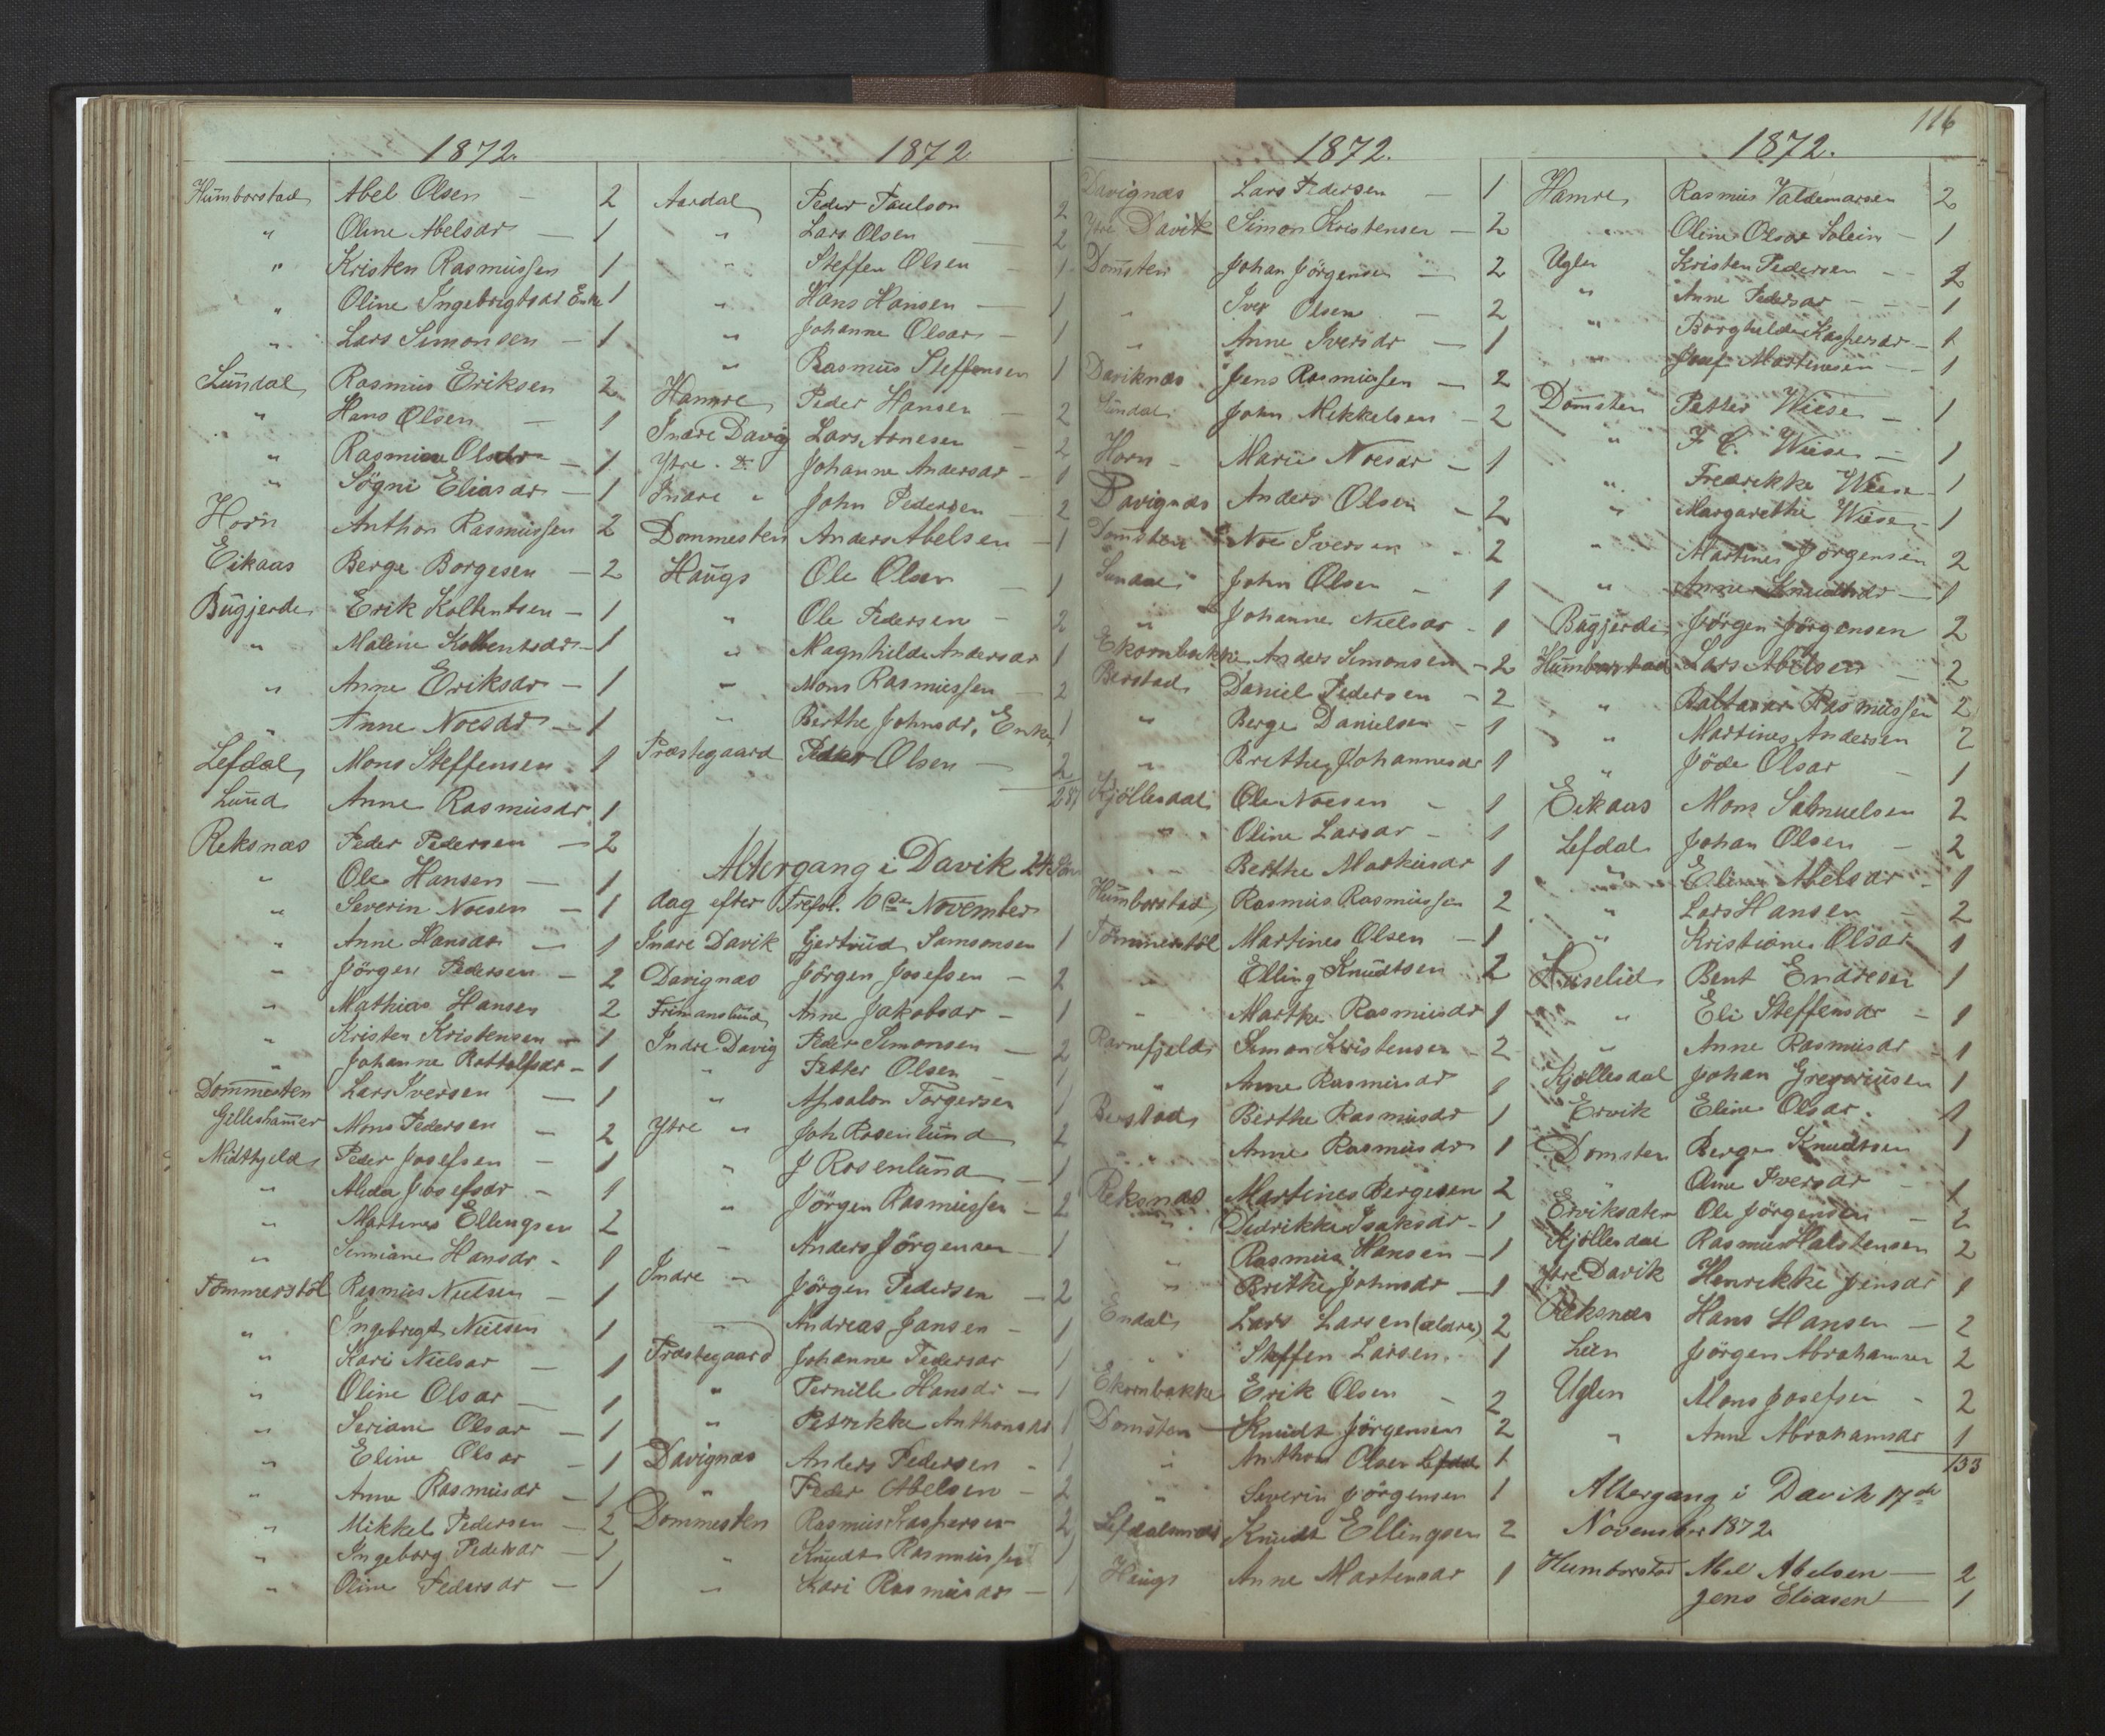 1872.
Humborstad Abel Olsen – 2
" Oline Abelsdr – 1
" Kristen Rasmussen 1
" Oline Ingebrigtsdr Enke 1
" Lars Simonsen – 1
Lundal Rasmus Eriksen 2
" Hans Olsen – 1
" Rasmine Olsdr – 1
" Sögni Eliasdr – 1
Horn Anthon Rasmussen 2
Eikaas Berge Borgesen – 2
Bugjerde Erik Kolbentsen – 1
" Malene Kolbentsdr – 1
" Anne Eriksdr – 1
Anne Noesdr – 1
Lefdal Mons Steffensen 1
Lund Anne Rasmusdr 1
Reksnæs Peder Pedersen – 2
" Ole Hansen – 1
" Severin Noesen – 1
" Anne Hansdr – 1
" Jörgen Pedersen – 2
" Mathias Hansen 2
" Kristen Kristensen – 1
" Johanne Rottolfsdr – 1
Dommesten Lars Iversen – 1
Gilleshammer Mons Pedersen – 2
Midthjeld Peder Josefsen – 1
" Alida Josefsdr – 1
" Martines Ellingsen 2
" Hansdr – 1
Tömmerstöl Rasmus Nielsen – 1
" Ingebrigt Nielsen 1
" Kari Nielsdr – 1
" Oline Olsdr – 1
" Seriane Olsdr – 1
" Eline Olsdr – 1
" Anne Rasmusdr – 1
" Mikkel Pedersen – 2
" Ingeborg Pedersdr – 1
" Oline Pedersdr – 1
1872
Aardal Peder Paulson 2
" Lars Olsen – 2
" Steffen Olsen – 1
" Hans Hansen – 1
" Johanne Olsdr – 1
" Rasmus Steffensen 1
Hamre Peder Hansen – 2
Indre Davig Lars Arnesen – 2
Ytre Johanne Andersdr – 1
Indre " John Pedersen – 2
Dommesten Anders Abelsen – 1
Haugs Ole Olsen – 1
" Ole Pedersen – 2
" Magnhilde Andersdr 1
" Mons Rasmussen – 2
" Berthe Johnsdr, Enke 1
Præstegaard Peder Olsen – 2
287
Altergang i Davik 24 Søn
dag efter Trefol. 10de November
Indre Davik Gjertrud Samsonsen 1
Davignæs Jörgen Josefsen – 2
Frimanslund Anne Jakobsdr – 1
Indre Davig Peder Simonsen – 2
" Petter Olsen – 1
" Absalon Torgersen 1
Ytre " Joh Rosenlund 2
" J Rosenlund – 1
" Jörgen Rasmussen – 2
" Anders Jörgensen – 1
Indre " Jörgen Pedersen – 2
" Andreas Jansen – 1
Præstegaard Johanne Pedersdr 1
" Pernille Hansdr – 1
" Petrikke Anthonsdr 1
Davignæs Anders Pedersen – 1
" Peder Abelsen – 2
Dommesten Rasmus Kaspersen 2
" Knudt Rasmussen 1
" Kari Rasmusdr – 1
1872.
Davignæs Lars Pedersen – 1
Ytre Davik Simon Kristensen – 2
Domsten Johan Jörgensen – 2
" Iver Olsen – 2
" Anne Iversdr – 1
Daviknæs Jens Rasmussen – 2
Lundal John Mikkelsen – 2
Horn – Marie Noesdr – 1
Davignæs Anders Olsen – 2
Domsten Noe Iversen – 2
John Olsen – 1
" Johanne Nielsdr – 1
Ekornbakke Anders Simonsen – 2
Berstad Daniel Pedersen – 2
" Berge Danielsen – 1
" Brithe Johannesdr 1
Kjöllesdal Ole Noesen – 1
" Oline Larsdr – 1
" Berthe Markusdr 1
Humborstad Rasmus Rasmussen 2
Tömmerstöl Martines Olsen – 1
" Elling Knudtsen 2
" Marthe Rasmusdr 1
Ravnefjeld Simon Kristensen – 2
" Anne Rasmusdr 1
Berstad Berthe Rasmusdr 1
" Anne Rasmusdr 1
Reksnæs Martines Bergesen 2
" Didrikke Isaksdr – 1
" Rasmus Hansen – 1
" Brithe Johnsdr – 1
Endal Lars Larsen (ældre) 2
" Steffen Larsen 1
Ekornbakke Erik Olsen – 2
Domsten Knudt Jörgensen 2
" Anthon Olsen Lefdal 1
" Severin Jörgensen 1
Lefdalsnæs Knudt Ellingsen 2
Haugs Anne Martensdr 1
116
1872.
Hamre Rasmus Valdemarsen 2
" Oline Olsdr Solein – 1
Uglen Kristen Pedersen – 2
" Anne Pedersdr – 1
" Borghilde Kaspersdr – 1
" Josef Martinusen – 1
Domsten Petter Wiese – 1
" F C. Wiese – 1
" Fredrikke Wiese – 1
" Margarethe Wiese – 1
" Martines Jörgensen 2
" Anne Knudtsdr – 1
Bugjerde Jörgen Jörgensen 2
Humborstad Lars Abelsen – 2
" Baltasar Rasmussen 2
" Martines Andersen 2
" Jöde Olsdr – 1
Eikaas Mons Salmuelsen 2
Lefdal Johan Olsen – 2
" Eline Abelsdr – 1
" Lars Hansen – 2
" Kristiane Olsdr 1
Bent Endresen 1
" Eli Steffensdr – 1
" Anne Rasmusdr – 1
Kjöllesdal Johan Gregoriusen 1
Ervik Eline Olsdr – 1
Domsten Berge Knudtsen 1
" Oline Iversdr – 1
Erviksæter Ole Jörgensen – 2
Kjöllesdal Rasmus Halstensen 2
Ytre Davik Henrikke Jensdr 1
Reksnæs Hans Hansen – 2
Leen Jörgen Abrahamsen 2
Uglen Mons Josefsen – 2
" Anne Abrahamsdr 1
133
Altergang i Davik 17de
November 1872
Humborstad Abel Abelsen – 2
Jens Eliasen – 1